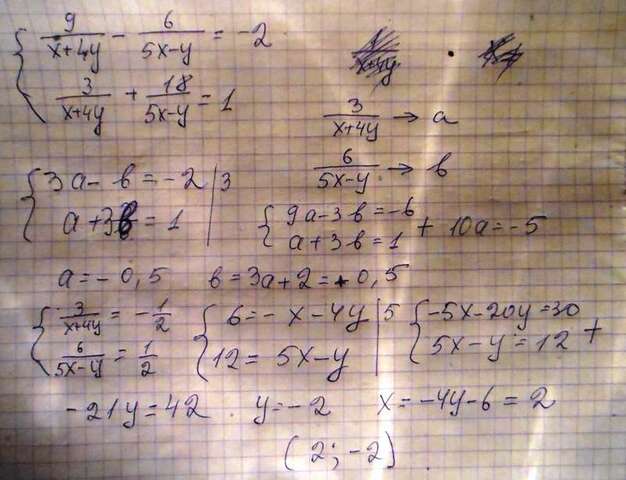 9/(x+4y) - 6/(5x-y) = -2
3/(x+4y) + 18/(5x-y) = 1
3/(x+4y) → a
6/(5x-y) → в
{ 3a - в = -2 | 3
a + 3в = 1
{ 9a - 3в = -6
a + 3в = 1 + 10a = -5
a = -0,5 в = 3a + 2 = +0,5
{ 3/(x+4y) = -1/2
6/(5x-y) = 1/2
{ 6 = -x - 4y | 5
12 = 5x - y
{ -5x - 20y = 30
5x - y = 12 +
-21y = 42 y = -2 x = -4y - 6 = 2
(2; -2)